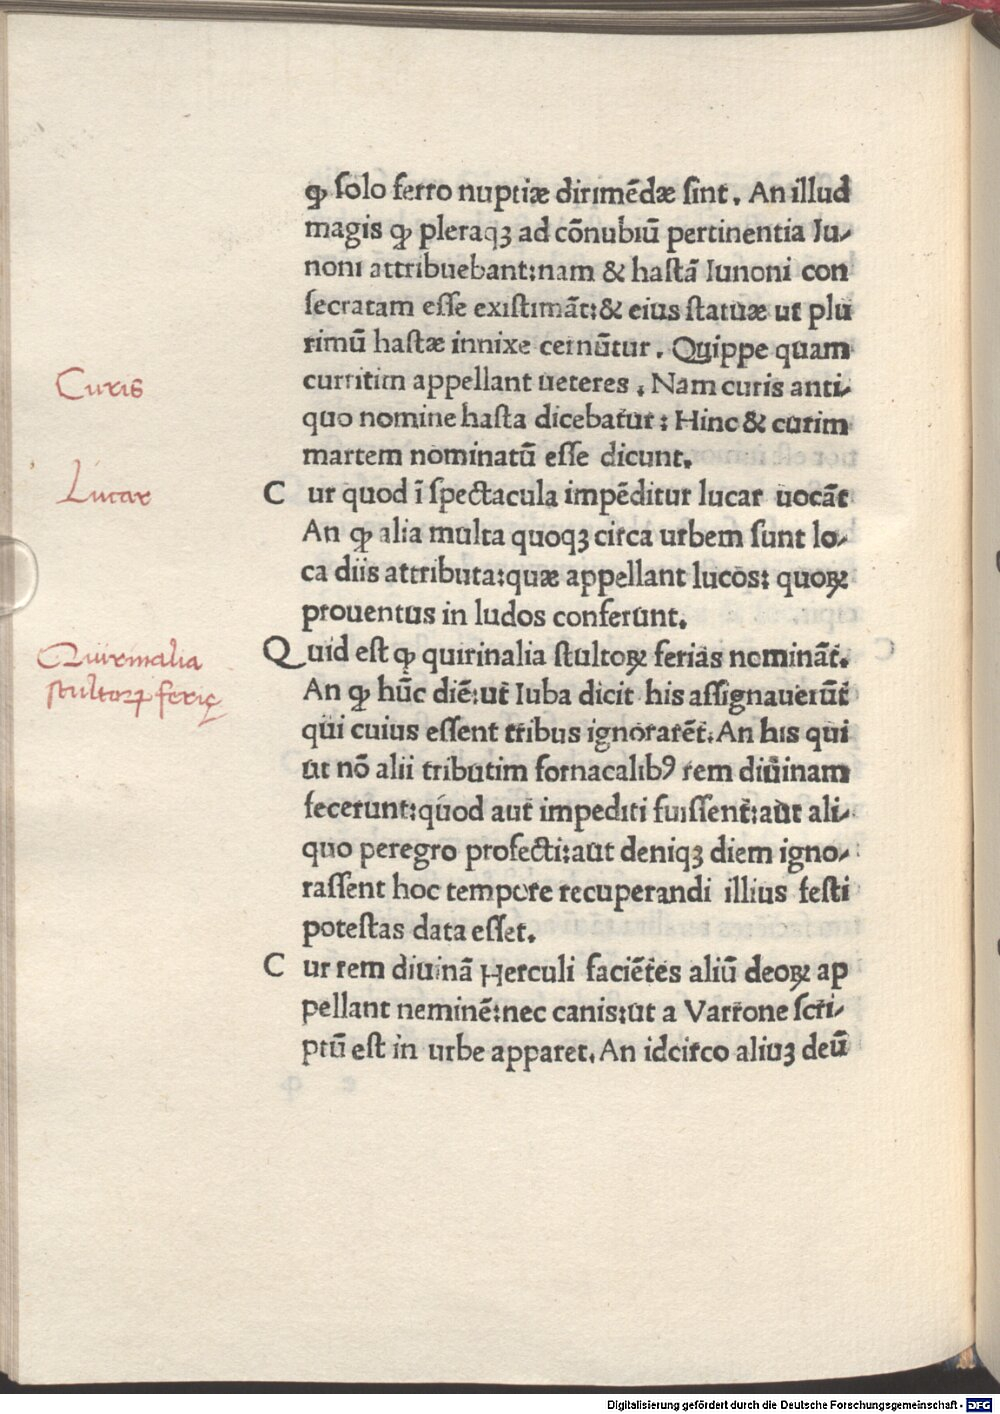 ꝙ ſolo ferro nuptiæ dirimēdæ ſint. An illud
magis ꝙ pleraqꝫ ad cōnubiū pertinentia Iu-
noni attribuebant:nam & haſtā Iunoni con
ſecratam eſſe exiſtimāt:& eius ſtatuæ ut plu
rimū haſtæ innixe cernūtur. Quippe quam
curritim appellant ueteres. Nam curis anti-
quo nomine haſta dicebatur: Hinc & curim
martem nominatū eſſe dicunt.
Curis
C ur quod ī ſpectacula impēditur lucar uocāt
An ꝙ alia multa quoqꝫ circa urbem ſunt lo-
ca diis attributa:quæ appellant lucos: quoꝝ
prouentus in ludos conferunt.
Lucar
Quid eſt ꝙ quirinalia ſtultoꝝ ferias nomināt.
An ꝙ hūc diē:ut Iuba dicit his aſſignauerūt
qui cuius eſſent tribus ignorarēt. An his qui
ut nō alii tributim fornacalibꝰ rem diuinam
fecerunt:quod aut impediti fuiſſent:aut ali-
quo peregro profecti:aut deniqꝫ diem igno-
raſſent hoc tempore recuperandi illius feſti
poteſtas data eſſet.
Quirinalia
ſtultoꝝ ferię
C ur rem diuinā Herculi faciētes aliū deoꝝ ap
pellant neminē:nec canis:ut a Varrone ſcri-
ptū eſt in urbe apparet. An idcirco aliuꝫ deū
Digitalisierung gefördert durch die Deutsche Forschungsgemeinschaft - DFG